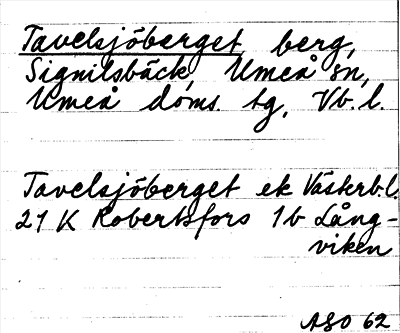 Tavelsjöberget berg,
Signilsbäck, Umeå sn,
Umeå doms tg, Vb. l.
Tavelsjöberget ek Västerb.l.
21 K Robertsfors 1b Lång-
viken
ASO 62